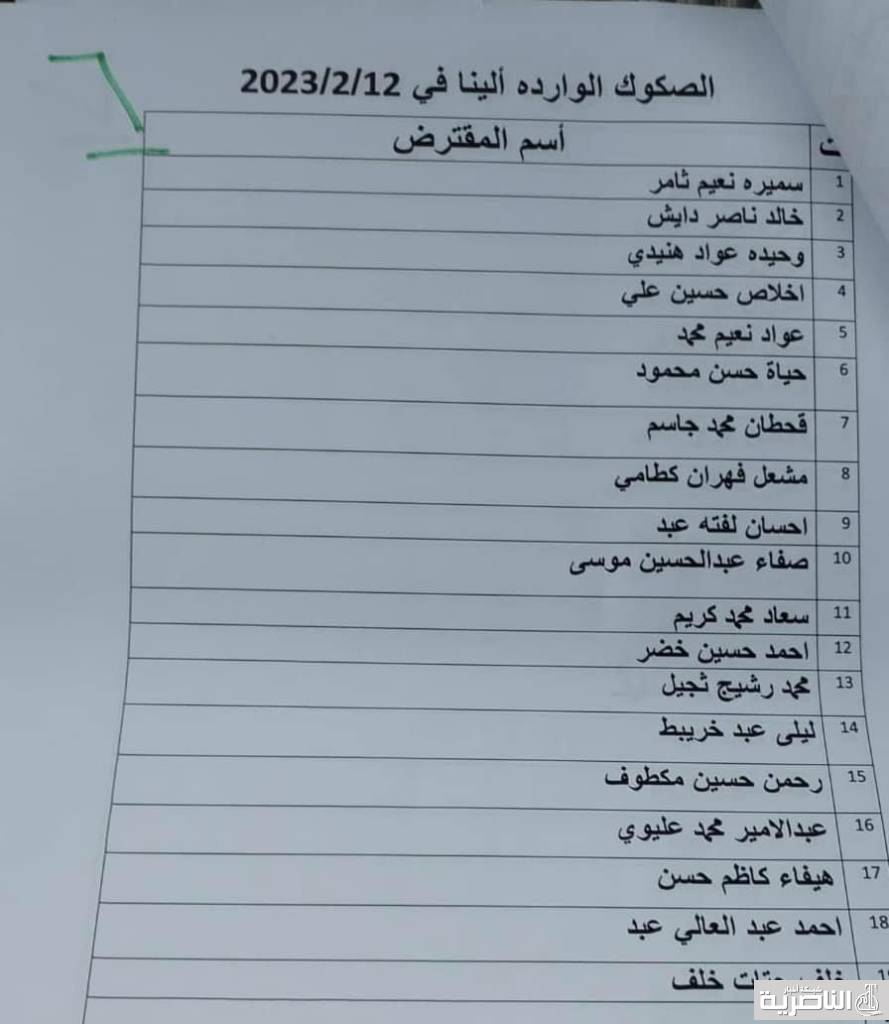 الصكوك الوارده ألينا في 2023/2/12
ت أسم المقترض
1 سميره نعيم ثامر
2 خالد ناصر دايش
3 وحيده عواد هنيدي
4 اخلاص حسين علي
5 عواد نعيم محمد
6 حياة حسن محمود
7 قحطان محمد جاسم
8 مشعل فهران كطامي
9 احسان لفته عبد
10 صفاء عبدالحسين موسى
11 سعاد محمد كريم
12 احمد حسين خضر
13 محمد رشيج ثجيل
14 ليلى عبد خريبط
15 رحمن حسين مكطوف
16 عبدالامير محمد عليوي
17 هيفاء كاظم حسن
18 احمد عبد العالي عبد
خلف
شبكة أخبار
الناصرية